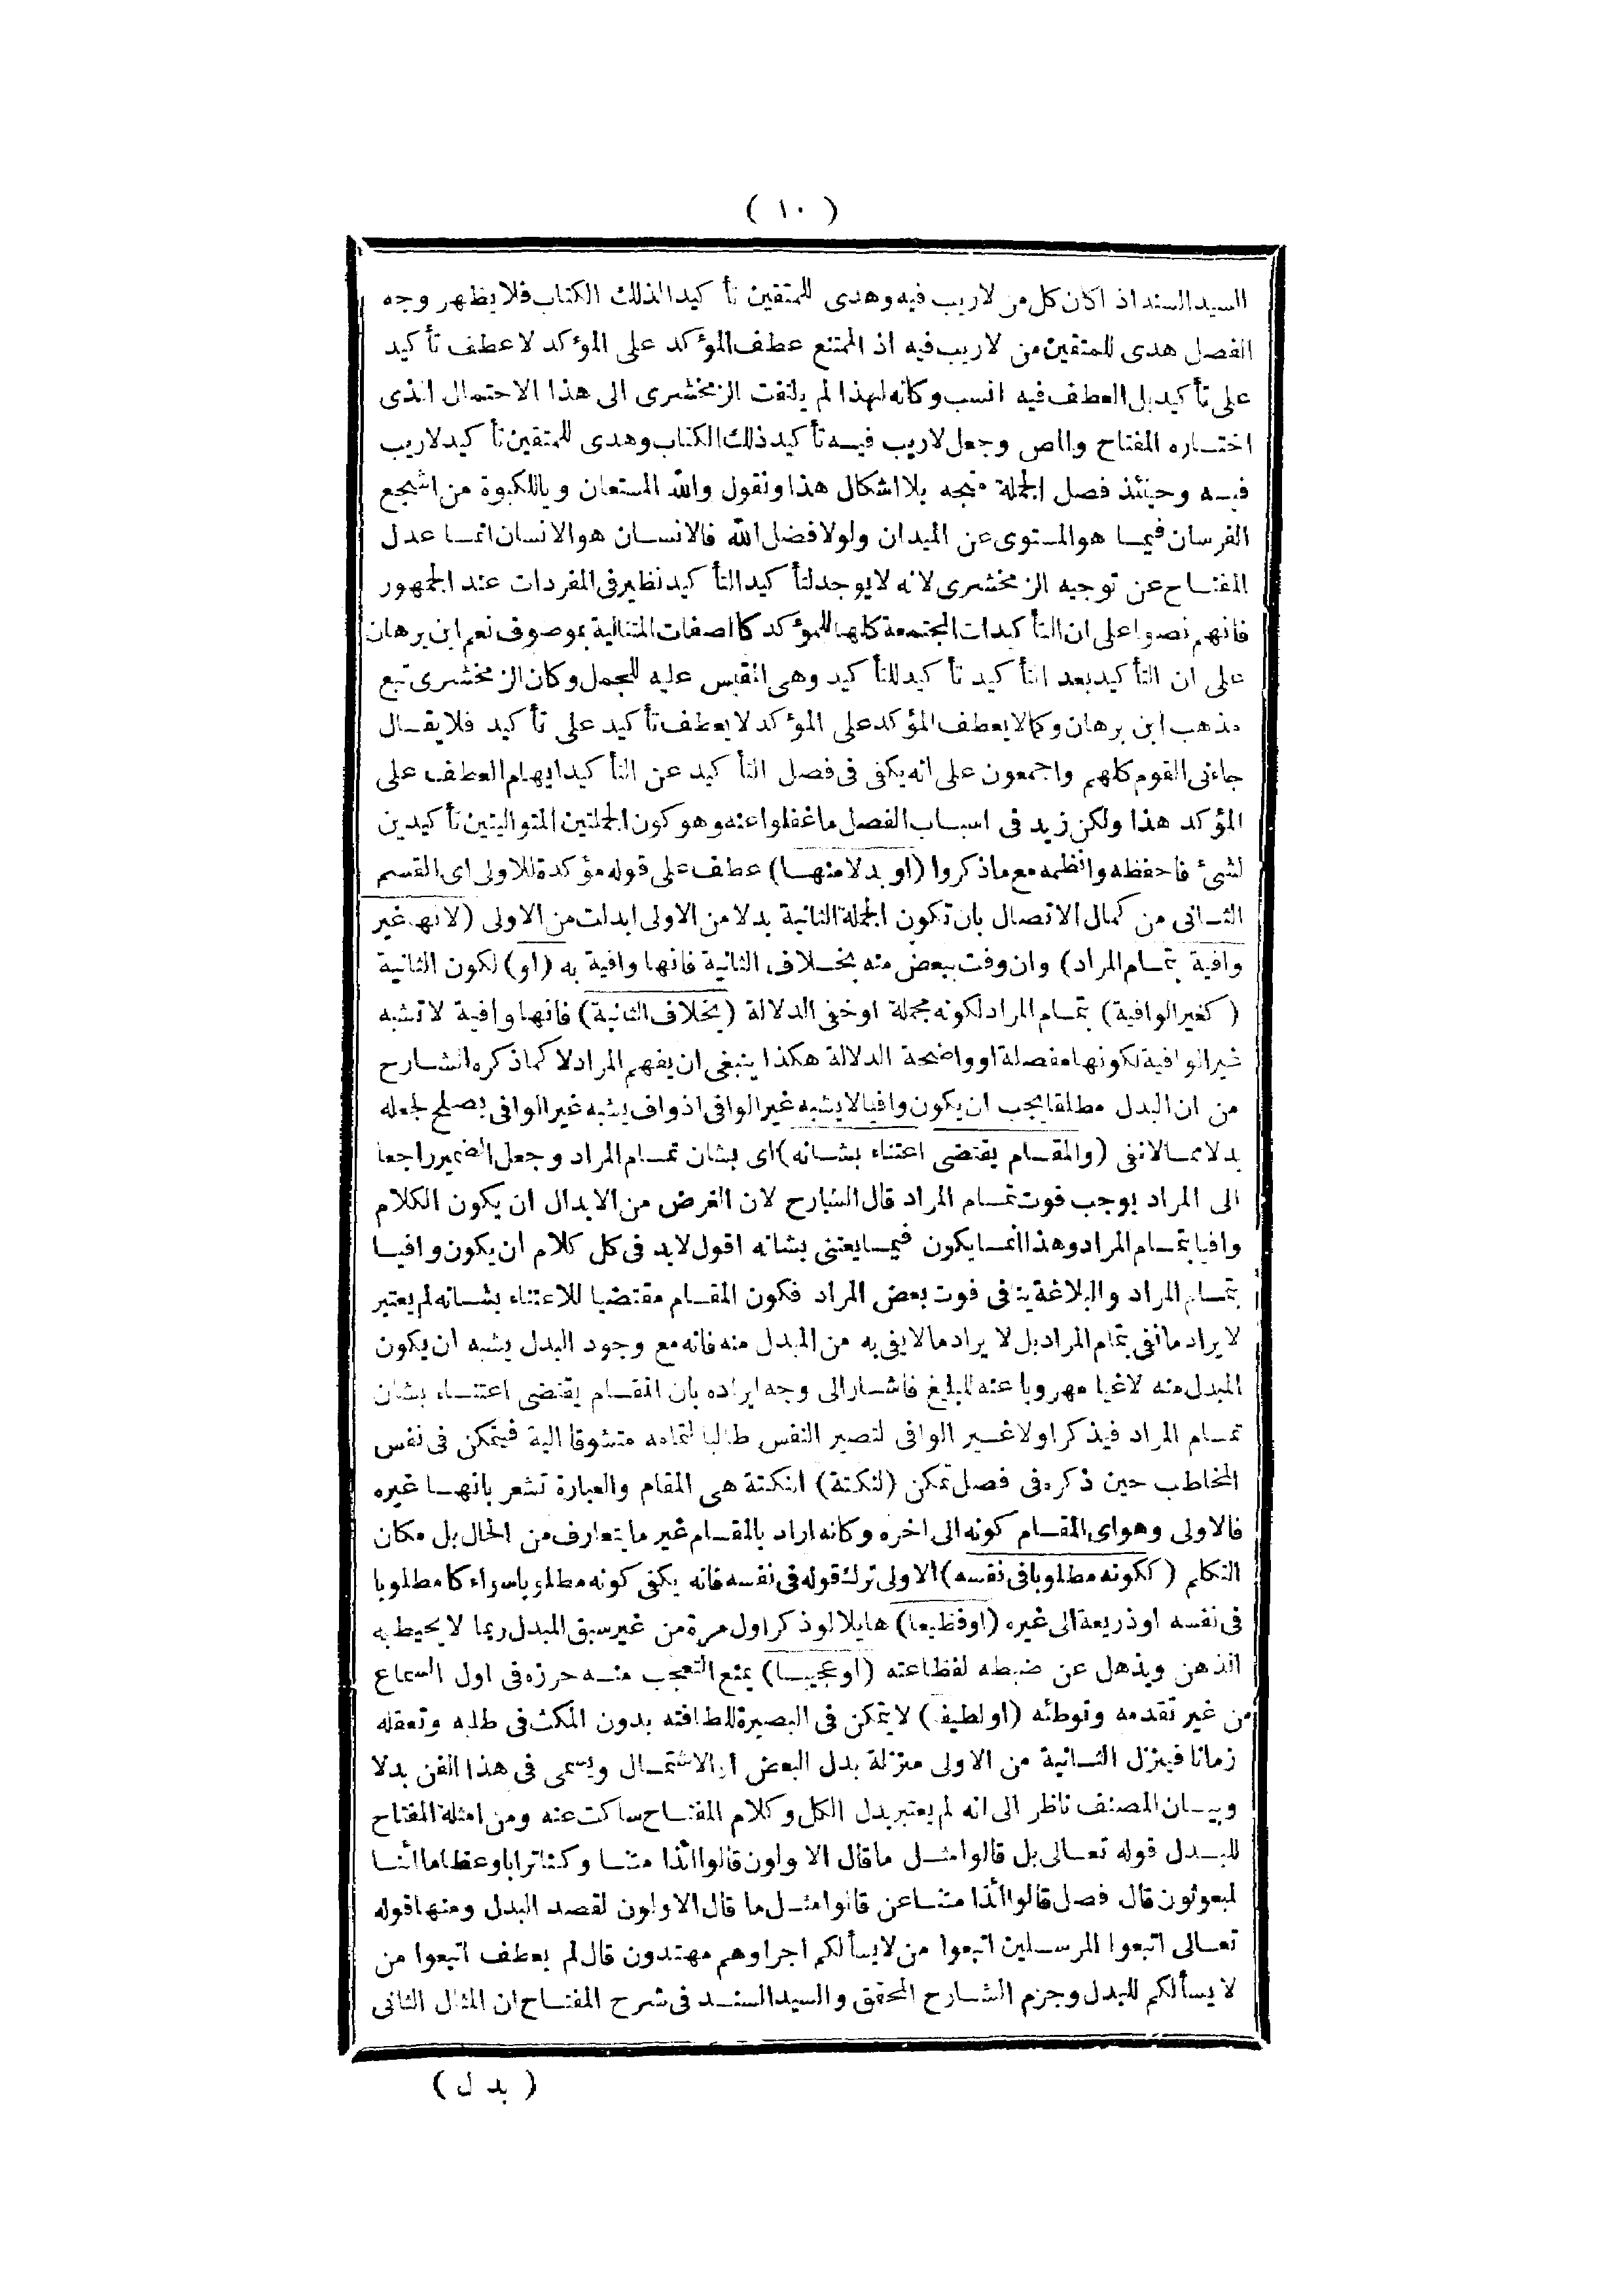 ( ١٠ )
السيد السند اذ اكان كل من لاريب فيه وهدى للمتقين تأ كيد الذلك الكتاب فلا يظهر وجه
الفصل هدى للمتقين من لاريب فيه اذ الممتنع عطف المؤكد على المؤكد لا عطف تأكيد
على تأكيد بل العطف فيه انسب وكانه لهذا لم يلتفت الزمخشرى الى هذا الاحتمال الذى
اختاره المفتاح والص وجعل لاريب فيه تأكيد ذلك الكتاب وهدى للمتقين تأكيد لاريب
فيه وحينئذ فصل الجملة متجه بلا اشكال هذا ونقول والله المستعان وياللكبوة من اشجع
الفرسان فيما هو المستوى عن الميدان ولولا فضل الله فالانسان هو الانسان انما عدل
المفتاح عن توجيه الزمخشرى لانه لا يوجد لتأكيد التأكيد نظير فى المفردات عند الجمهور
فانهم نصوا على ان التأكيدات المجتمعة كلها للمؤكد كالصفات المتتالية بموصوف نعم ابن برهان
على ان التأكيد بعد التأكيد تأكيد للتأكيد وهى المقيس عليه للجمل وكان الزمخشرى تبع
مذهب ابن برهان وكما لا يعطف المؤكد على المؤكد لا يعطف تأكيد على تأكيد فلا يقال
جاءنى القوم كلهم واجمعون على انه يكفى فى فصل التأكيد عن التأكيد ايهام العطف على
المؤكد هذا ولكن زيد فى اسباب الفصل ما غفلوا عنه وهو كون الجملتين المتواليتين تأكيدين
لشئ فاحفظه وانظمه مع ماذكروا (او بدلا منها) عطف على قوله مؤكدة للاولى اى القسم
الثانى من كمال الاتصال بان تكون الجملة الثانية بدلا من الاولى ابدلت من الاولى (لانها غير
وافية بتمام المراد) وان وفت ببعض منه بخلاف الثانية فانها وافية به (او) لكون الثانية
(كغير الوافية) بتمام المراد لكونه مجملة او خفى الدلالة (بخلاف الثانية) فانها وافية لا تشبه
غير الوافية لكونها مفصلة او واضحة الدلالة هكذا ينبغى ان يفهم المراد لا كما ذكره الشارح
من ان البدل مطلقا يجب ان يكون وافيا لا يشبه غير الوافى اذ واف يشبه غير الوافى يصلح لجعله
بدلا مما لانفى (والمقام يقتضى اعتناء بشانه) اى بشان تمام المراد وجعل الضمير راجعا
الى المراد يوجب فوت تمام المراد قال الشارح لان الغرض من الابدال ان يكون الكلام
وافيا بتمام المراد وهذا انما يكون فيما يعتنى بشانه اقول لابد فى كل كلام ان يكون وافيا
بتمام المراد والبلاغة ينافى فوت بعض المراد فكون المقام مقتضيا للاعتناء بشانه لم يعتبر
لا يراد ما نفى بتمام المراد بل لا يراد ما لا يفى به من المبدل منه فانه مع وجود البدل يشبه ان يكون
المبدل منه لاغيا مهروبا عنه للبليغ فاشار الى وجه ايراده بان المقام يقتضى اعتناء بشان
تمام المراد فيذكر اولا غير الوافى لتصير النفس طالبا لتمامه متشوقا الية فيتمكن فى نفس
المخاطب حين ذكره فى فصل تمكن (لنكتة) النكتة هى المقام والعبارة تشعر بانها غيره
فالاولى وهو اى المقام كونه الى اخره وكانه اراد بالمقام غير ما يتعارف من الحال بل مكان
التكلم (ككونه مطلوبا فى نفسه) الاولى ترك قوله فى نفسه فانه يكفى كونه مطلوبا سواء كا مطلوبا
فى نفسه او ذريعة الى غيره (او فظيعا) هايلا لو ذكر اول مرة من غير سبق المبدل ربما لا يحيط به
الذهن ويذهل عن ضبطه لفظاعته (او عجيبا) يمنع التعجب منه حرزه فى اول السماع
من غير تقدمه وتوطئه (او لطيفا) لا يتمكن فى البصيرة للطافته بدون المكث فى طلبه وتعقله
زمانا فينزل الثانية من الاولى منزلة بدل البعض او الاشتمال ويسمى فى هذا الفن بدلا
وبيان المصنف ناظر الى انه لم يعتبر بدل الكل وكلام المفتاح ساكت عنه ومن امثلة المفتاح
للبدل قوله تعالى بل قالوا مثل ما قال الاولون قالوا ائذا متنا وكنا ترابا وعظاما ائنا
لمبعوثون قال فصل قالوا ائذا متنا عن قالوا مثل ما قال الاولون لقصد البدل ومنها قوله
تعالى اتبعوا المرسلين اتبعوا من لا يسألكم اجرا وهم مهتدون قال لم يعطف اتبعوا من
لا يسألكم للبدل وجزم الشارح المحقق والسيد السند فى شرح المفتاح ان المثال الثانى
( بدل )